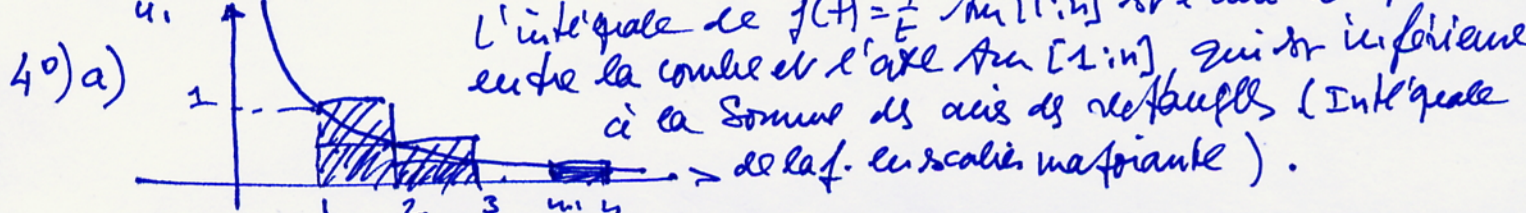 l'intégrale de f(t) = 1/t sur [1;n]
4°) a)
entre la courbe et l'axe sur [1;n] qui est inférieure
1
à la somme des aires des rectangles (Intégrale
de la f. en escalier majorante).
1 2 3 n-1 n